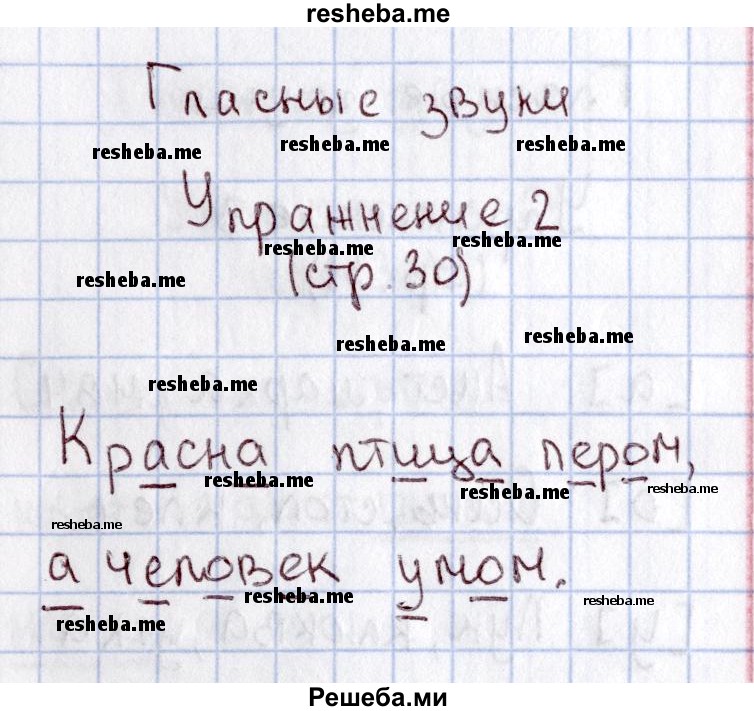 resheba.me
Гласные звуки
resheba.me resheba.me resheba.me
Упражнение 2
resheba.me resheba.me
(стр. 30)
resheba.me
resheba.me resheba.me
resheba.me
Красна птица пером,
resheba.me resheba.me resheba.me
resheba.me
а человек умом.
resheba.me resheba.me
resheba.me
Решеба.ми